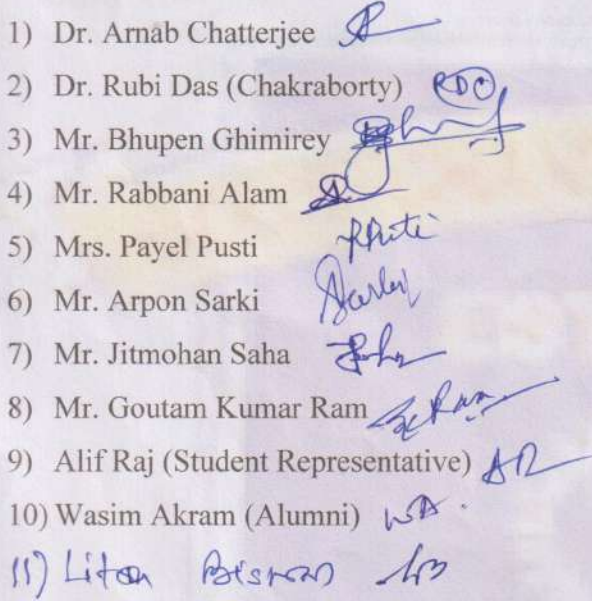 1) Dr. Arnab Chatterjee
2) Dr. Rubi Das (Chakraborty) RDC
3) Mr. Bhupen Ghimirey
4) Mr. Rabbani Alam
5) Mrs. Payel Pusti PPusti
6) Mr. Arpon Sarki Sarki
7) Mr. Jitmohan Saha
8) Mr. Goutam Kumar Ram GKRam
9) Alif Raj (Student Representative) AR
10) Wasim Akram (Alumni) WA.
11) Liton Biswas LB